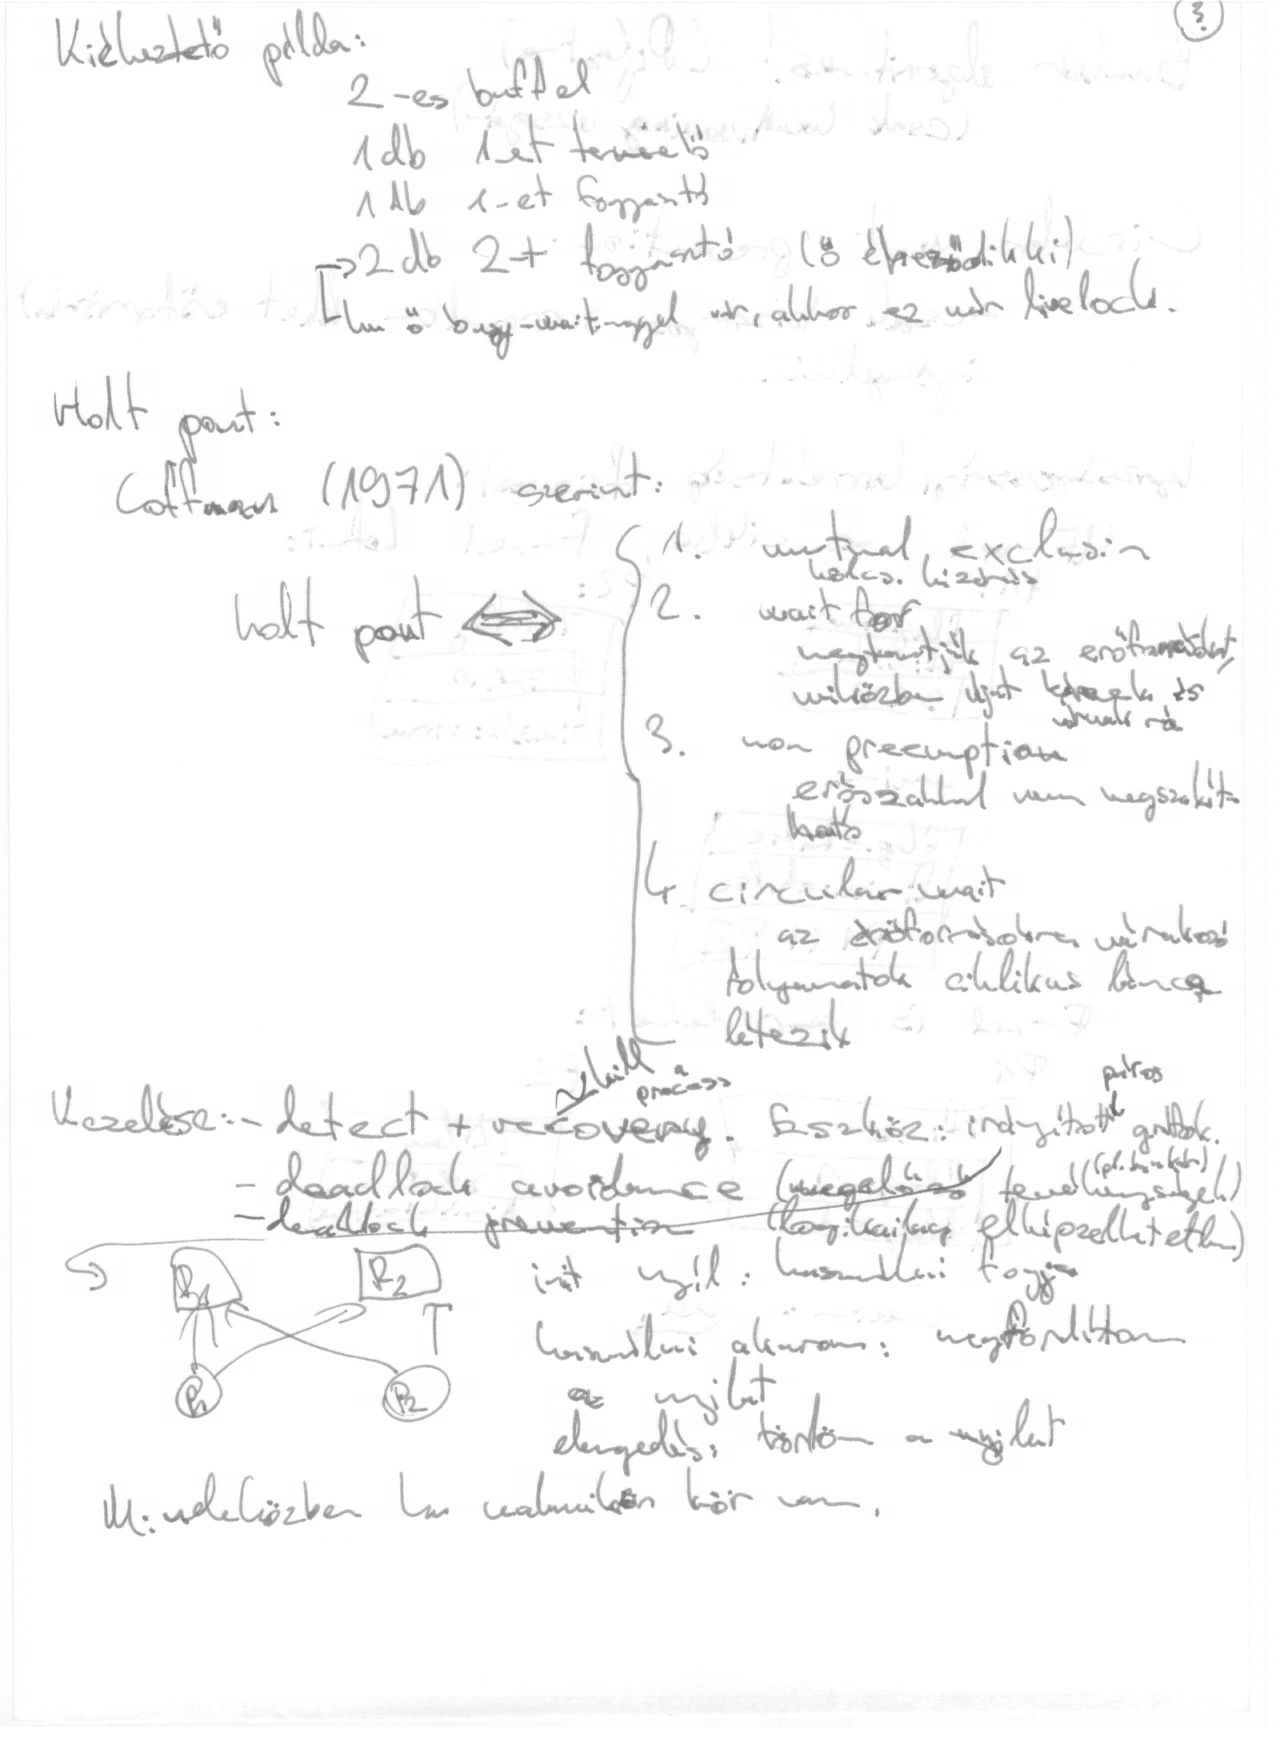 3.
Kiéheztető példa:
2-es buffel
1 db 1-et termelő
1 db 1-et fogyasztó
→ 2 db 2-t fogyasztó (ő éheződik ki)
ha ő busy-waitinggel vár, akkor ez már livelock.
Holt pont:
Coffman (1971) szerint:
holt pont ⇔
1. mutual exclusion
kölcs. kizárás
2. wait for
megtartják az erőforrásokat,
miközben újat kérnek és
várnak rá
3. non preemption
erőszakkal nem megszakít-
ható
4. circular wait
az erőforrásokra várakozó
folyamatok ciklikus lánca
létezik
kill a process
páros
Kezelése: - detect + recovery. Eszköz: irányított gráfok.
- deadlock avoidance (megelőző tevékenységek)
(pl. bankár)
- deadlock prevention (logikailag elképzelhetetlen)
R1 R2
P1 P2
init nyíl: használni fogja
használni akarom: megfordítom
a nyilat
elengedés: törlöm a nyilat
M: miközben ha valamikor kör van.